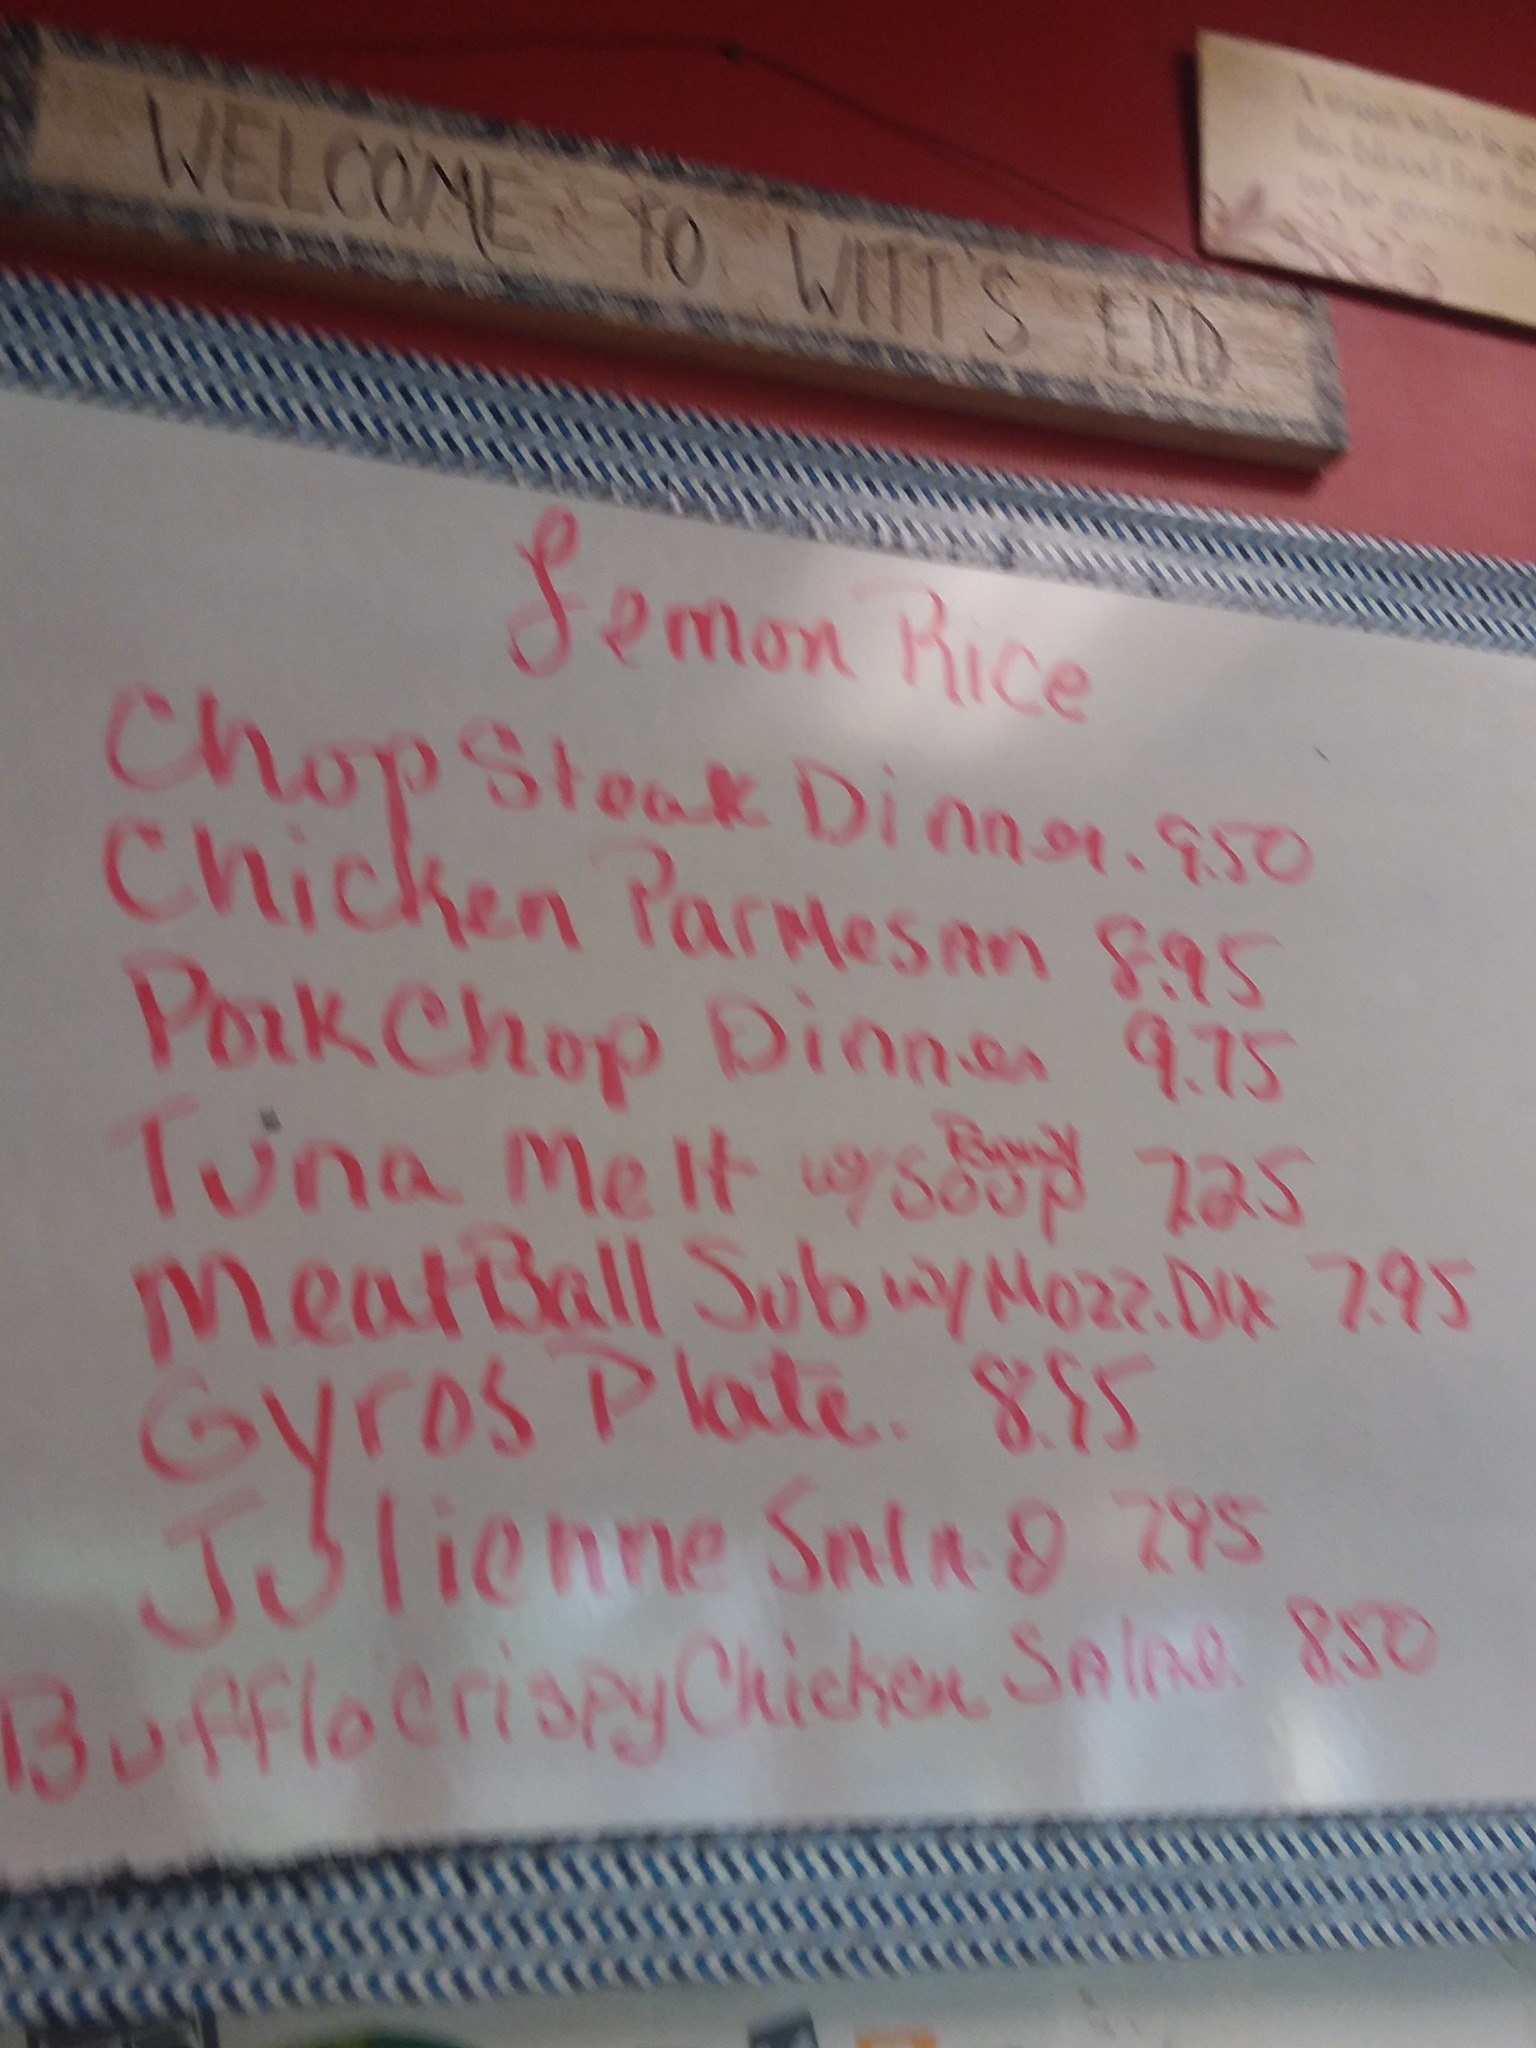 WELCOME TO WITT'S END
Lemon Rice
Chop Steak Dinner. 9.50
Chicken Parmesan 8.95
Pork Chop Dinner 9.75
Tuna Melt w/ Soup 7.25
MeatBall Sub w/ Mozz. Dlx 7.95
Gyros Plate. 8.95
Julienne Salad 7.95
Bufflo Crispy Chicken Salad. 8.50